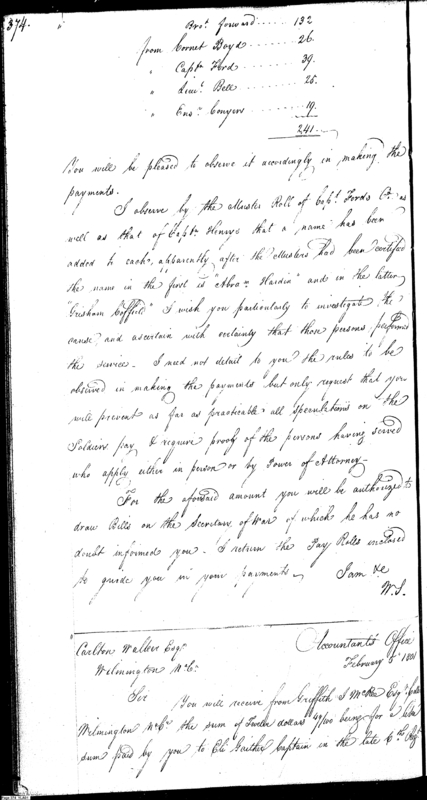 374.
Brot. forward ...... 132
from Cornet Boyd ...... 26.
" Captn. Ford ...... 39.
" Lieut. Bell ...... 25.
" Ensn. Conyers ...... 19.
241.
You will be pleased to observe it accordingly in making the
payments.
I observe by the Muster Roll of Capt. Fords Co. as
well as that of Captn. Henrys that a name has been
added to each, apparently after the Musters had been certified
the name in the first is "Abram Hardin" and in the latter
"Grisham Coffield" I wish you particularly to investigate the
cause and ascertain with certainty that those persons performed
the service. I need not detail to you the rules to be
observed in making the payments but only request that you
will prevent as far as practicable all speculations on the
Soldiers pay & require proof of the persons having served
who apply either in person or by Power of Attorney.
For the aforesaid amount you will be authorized to
draw Bills on the Secretary of War of which he has no
doubt informed you. I return the Pay Rolls inclosed
to guide you in your payments. I am &c
W. S.
Accountants Office
Carlton Walker Esqr.
February 5th 1801
Wilmington N. Ca.
Sir
You will receive from Griffith J McRee Esqr
Wilmington N Ca. the sum of Twelve dollars 49/100 being for a like
sum paid by you to Eli Gaither captain in the late 6th Regt.